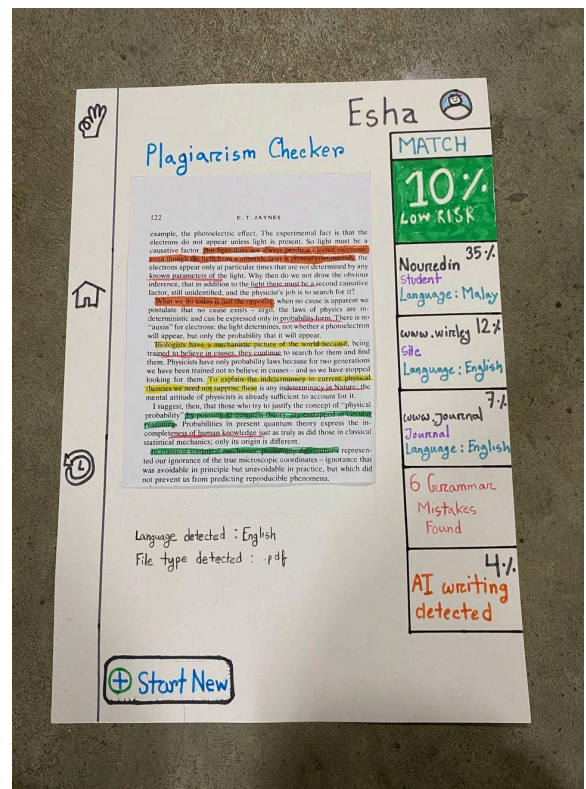 Esha
Plagiarism Checker
122
E. T. JAYNES
example, the photoelectric effect. The experimental fact is that the
electrons do not appear unless light is present. So light must be a
causative factor. But light does not always produce ejected electrons;
even though the light from a unimode laser is present continuously, the
electrons appear only at particular times that are not determined by any
known parameters of the light. Why then do we not draw the obvious
inference, that in addition to the light there must be a second causative
factor, still unidentified, and the physicist's job is to search for it?
What we do today is just the opposite; when no cause is apparent we
postulate that no cause exists – ergo, the laws of physics are in-
deterministic and can be expressed only in probability form. There is no
"auxin" for electrons: the light determines, not whether a photoelectron
will appear, but only the probability that it will appear.
Biologists have a mechanistic picture of the world because, being
trained to believe in causes, they continue to search for them and find
them. Physicists have only probability laws because for two generations
we have been trained not to believe in causes – and so we have stopped
looking for them. To explain the indeterminacy in current physical
theories we need not suppose there is any indeterminacy in Nature; the
mental attitude of physicists is already sufficient to account for it.
I suggest, then, that those who try to justify the concept of "physical
probability" by pointing to quantum theory, are entrapped in circular
reasoning. Probabilities in present quantum theory express the in-
completeness of human knowledge just as truly as did those in classical
statistical mechanics; only its origin is different.
In classical statistical mechanics, probability distributions represen-
ted our ignorance of the true microscopic coordinates – ignorance that
was avoidable in principle but unavoidable in practice, but which did
not prevent us from predicting reproducible phenomena.
Language detected : English
File type detected : .pdf
Start New
MATCH
10%
LOW RISK
35%
Nouredin
Student
Language : Malay
www.wirley 12%
Site
Language : English
7%
www.journal
Journal
Language : English
6 Grammar
Mistakes
Found
4%
AI writing
detected